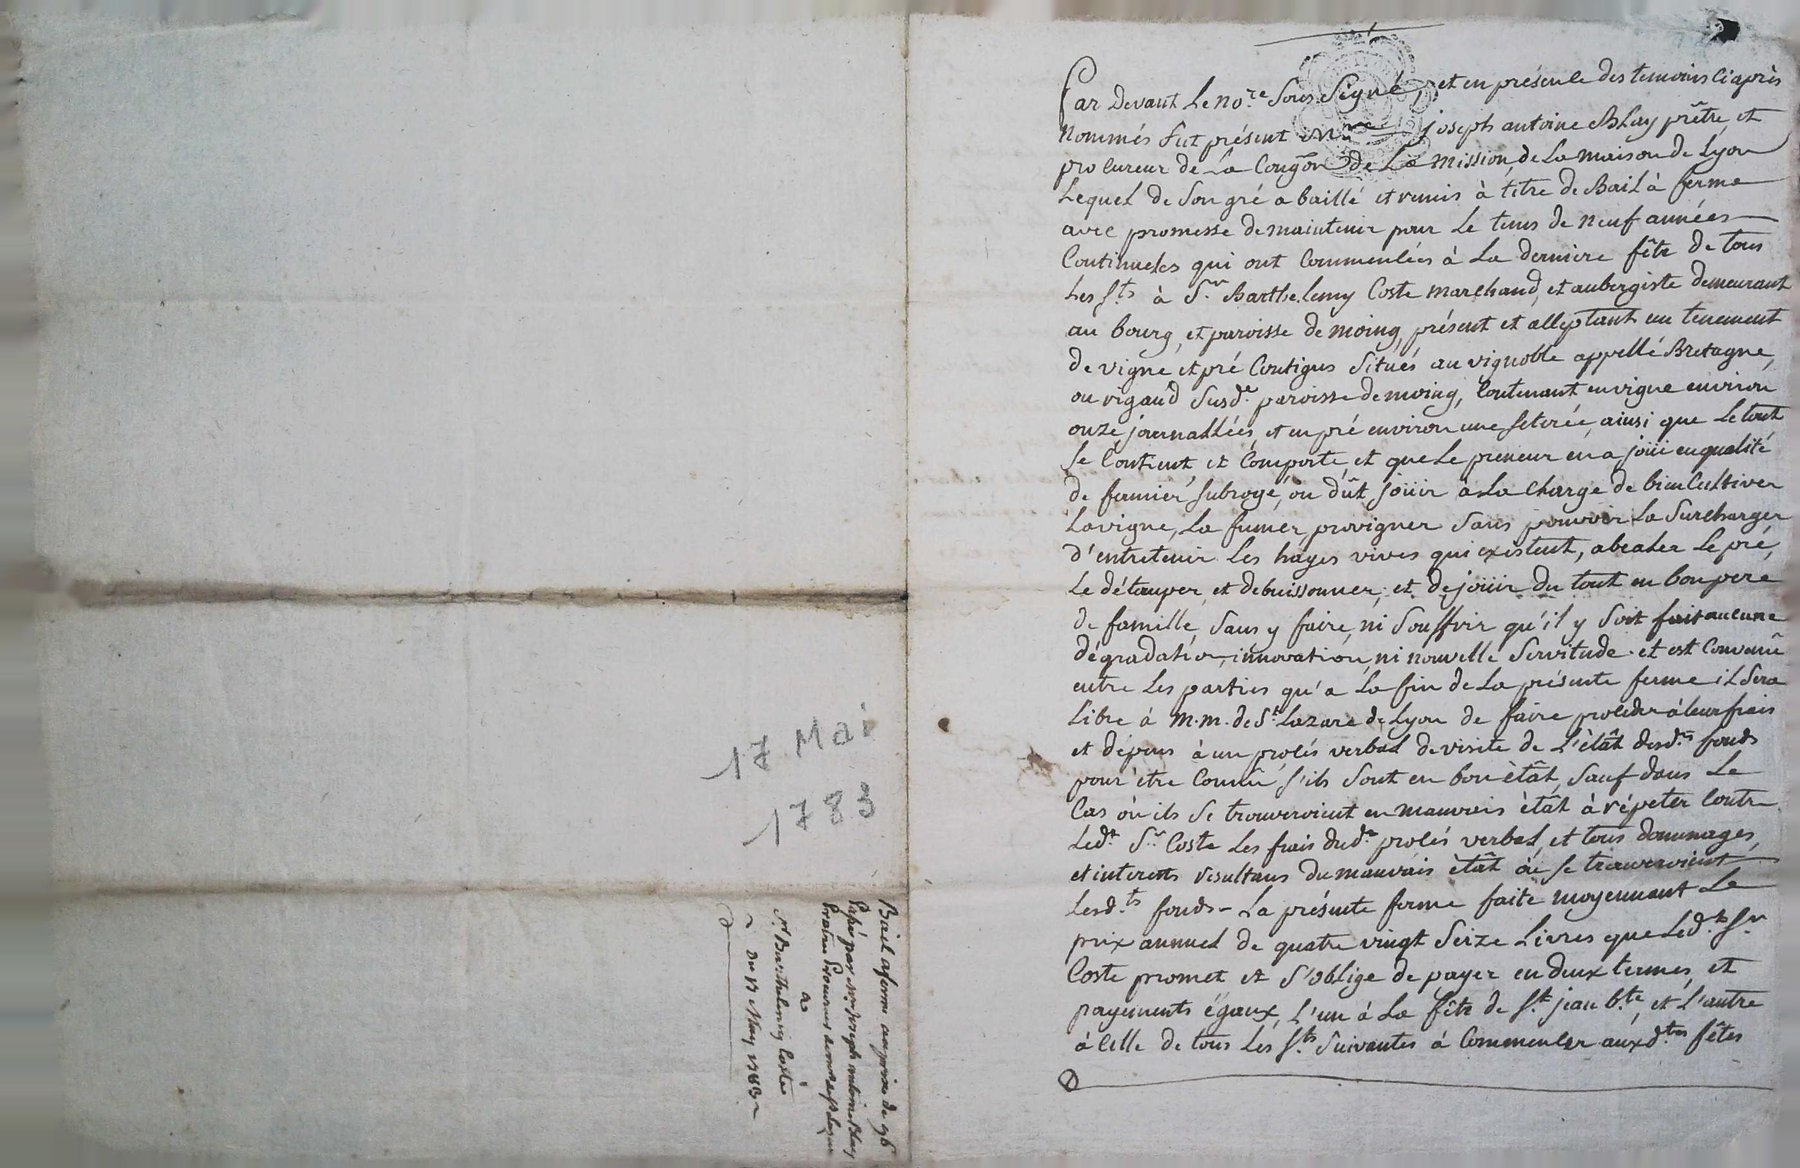 17 Mai
1783
Bail a ferme au prix de 96
Passé par Mre joseph antoine Blay
Pretre Procureur de
a
Sr. Barthelemy Coste
du 17 May 1783
Par Devant Le nore. Sous Signé, et en présence des temoins ci après
Nommés fut présent joseph antoine Blay prêtre, et
procureur de La Congon de La mission, de La maison de Lyon
Lequel de Son gré a baillé et remis à titre de Bail à ferme
avec promesse de maintenir pour Le tems de neuf années
Continuelles qui ont Commencées à La derniere fête de tous
Les Sts. à Sr. Barthelemy Coste marchand, et aubergiste demeurant
au bourg, et paroisse de moing, présent et acceptant un tenement
de vigne et pré Contigus Situés au vignoble appellé Bretagne,
ou rigaud Susde. paroisse de moing, Contenant en vigne environ
onze journallées, et en pré environ une seterée, ainsi que Le tout
Se Contient et Comporte, et que Le preneur en a joüi en qualité
de fermier subrogé, ou dût joüir à La Charge de bien Cultiver
La vigne, La fumer, provigner Sans pouvoir La Surcharger
d'entretenir Les hayes vives qui existent, abealer Le pré,
Le détauper, et debuissonner, et de joüir du tout en bon pere
de famille, Sans y faire, ni Souffrir qu'il y Soit fait aucune
dégradation, innovation, ni nouvelle Servitude. et est Convenû
entre Les parties qu'a La fin de La présente ferme il Sera
Libre à m.m. de St. Lazare de Lyon de faire proceder à leur frais
et dépens à un procés verbal de visite de L'état desdts. fonds
pour être Connû s'ils Sont en bon état, Sauf dans Le
Cas où ils Se trouveroient en mauvais état à répeter Contre
Ledt. Sr. Coste Les frais dudt. procés verbal, et tous dommages,
et interets résultans du mauvais état où se trouveroient
Lesdts. fonds - La présente ferme faite moyennant Le
prix annuel de quatre vingt Seize Livres que Ledt. Sr.
Coste promet et s'oblige de payer en deux termes, et
payements égaux, L'un à La fête de St. jean bte., et L'autre
à Celle de tous Les Sts. Suivantes à Commencer auxdtes. fêtes